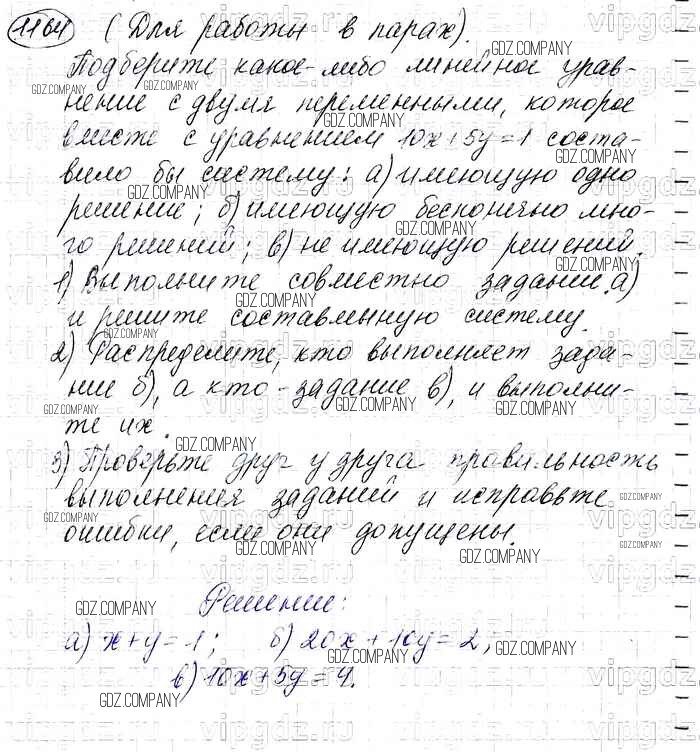 1164 (Для работы в парах).
Подберите какое-либо линейное урав-
нение с двумя переменными, которое
вместе с уравнением 10x+5y=1 соста-
вило бы систему: а) имеющую одно
решение; б) имеющую бесконечно мно-
го решений; в) не имеющую решений.
1) Выполните совместно задание а)
и решите составленную систему.
2) Распределите, кто выполняет зада-
ние б), а кто - задание в), и выполни-
те их.
3) Проверьте друг у друга правильность
выполнения заданий и исправьте
ошибки, если они допущены.
Решение:
а) x+y=1; б) 20x+10y=2,
в) 10x+5y=4.
GDZ.COMPANY
vipgdz.ru